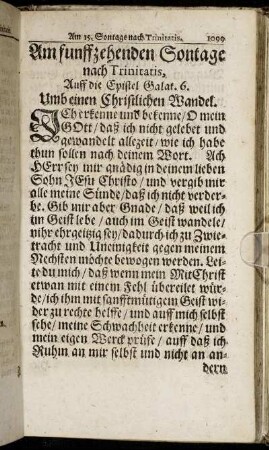 Am 15. Sontage nach Trinitatis. 1099
Am funffzehenden Sontage
nach Trinitatis,
Auff die Epistel Galat. 6.
Umb einen Christlichen Wandel.
ICh erkenne und bekenne / O mein
GOtt / daß ich nicht gelebet und
gewandelt allezeit / wie ich habe
thun sollen nach deinem Wort. Ach
HErr sey mir gnädig in deinem lieben
Sohn JEsu Christo / und vergib mir
alle meine Sünde / daß ich nicht verder-
be. Gib mir aber Gnade / daß weil ich
im Geist lebe / auch im Geist wandele /
nihr ehrgeizig sey / dadurch ich zu Zwie-
tracht und Uneinigkeit gegen meinem
Nechsten möchte bewogen werden. Lei-
te du mich / daß wenn mein MitChrist
etwan mit einem Fehl übereilet wür-
de / ich ihm mit sanfftmütigem Geist wi-
der zu rechte helffe / und auff mich selbst
sehe / meine Schwachheit erkenne / und
mein eigen Werck prüfe / auff daß ich
Ruhm an mir selbst und nicht an an-
dern